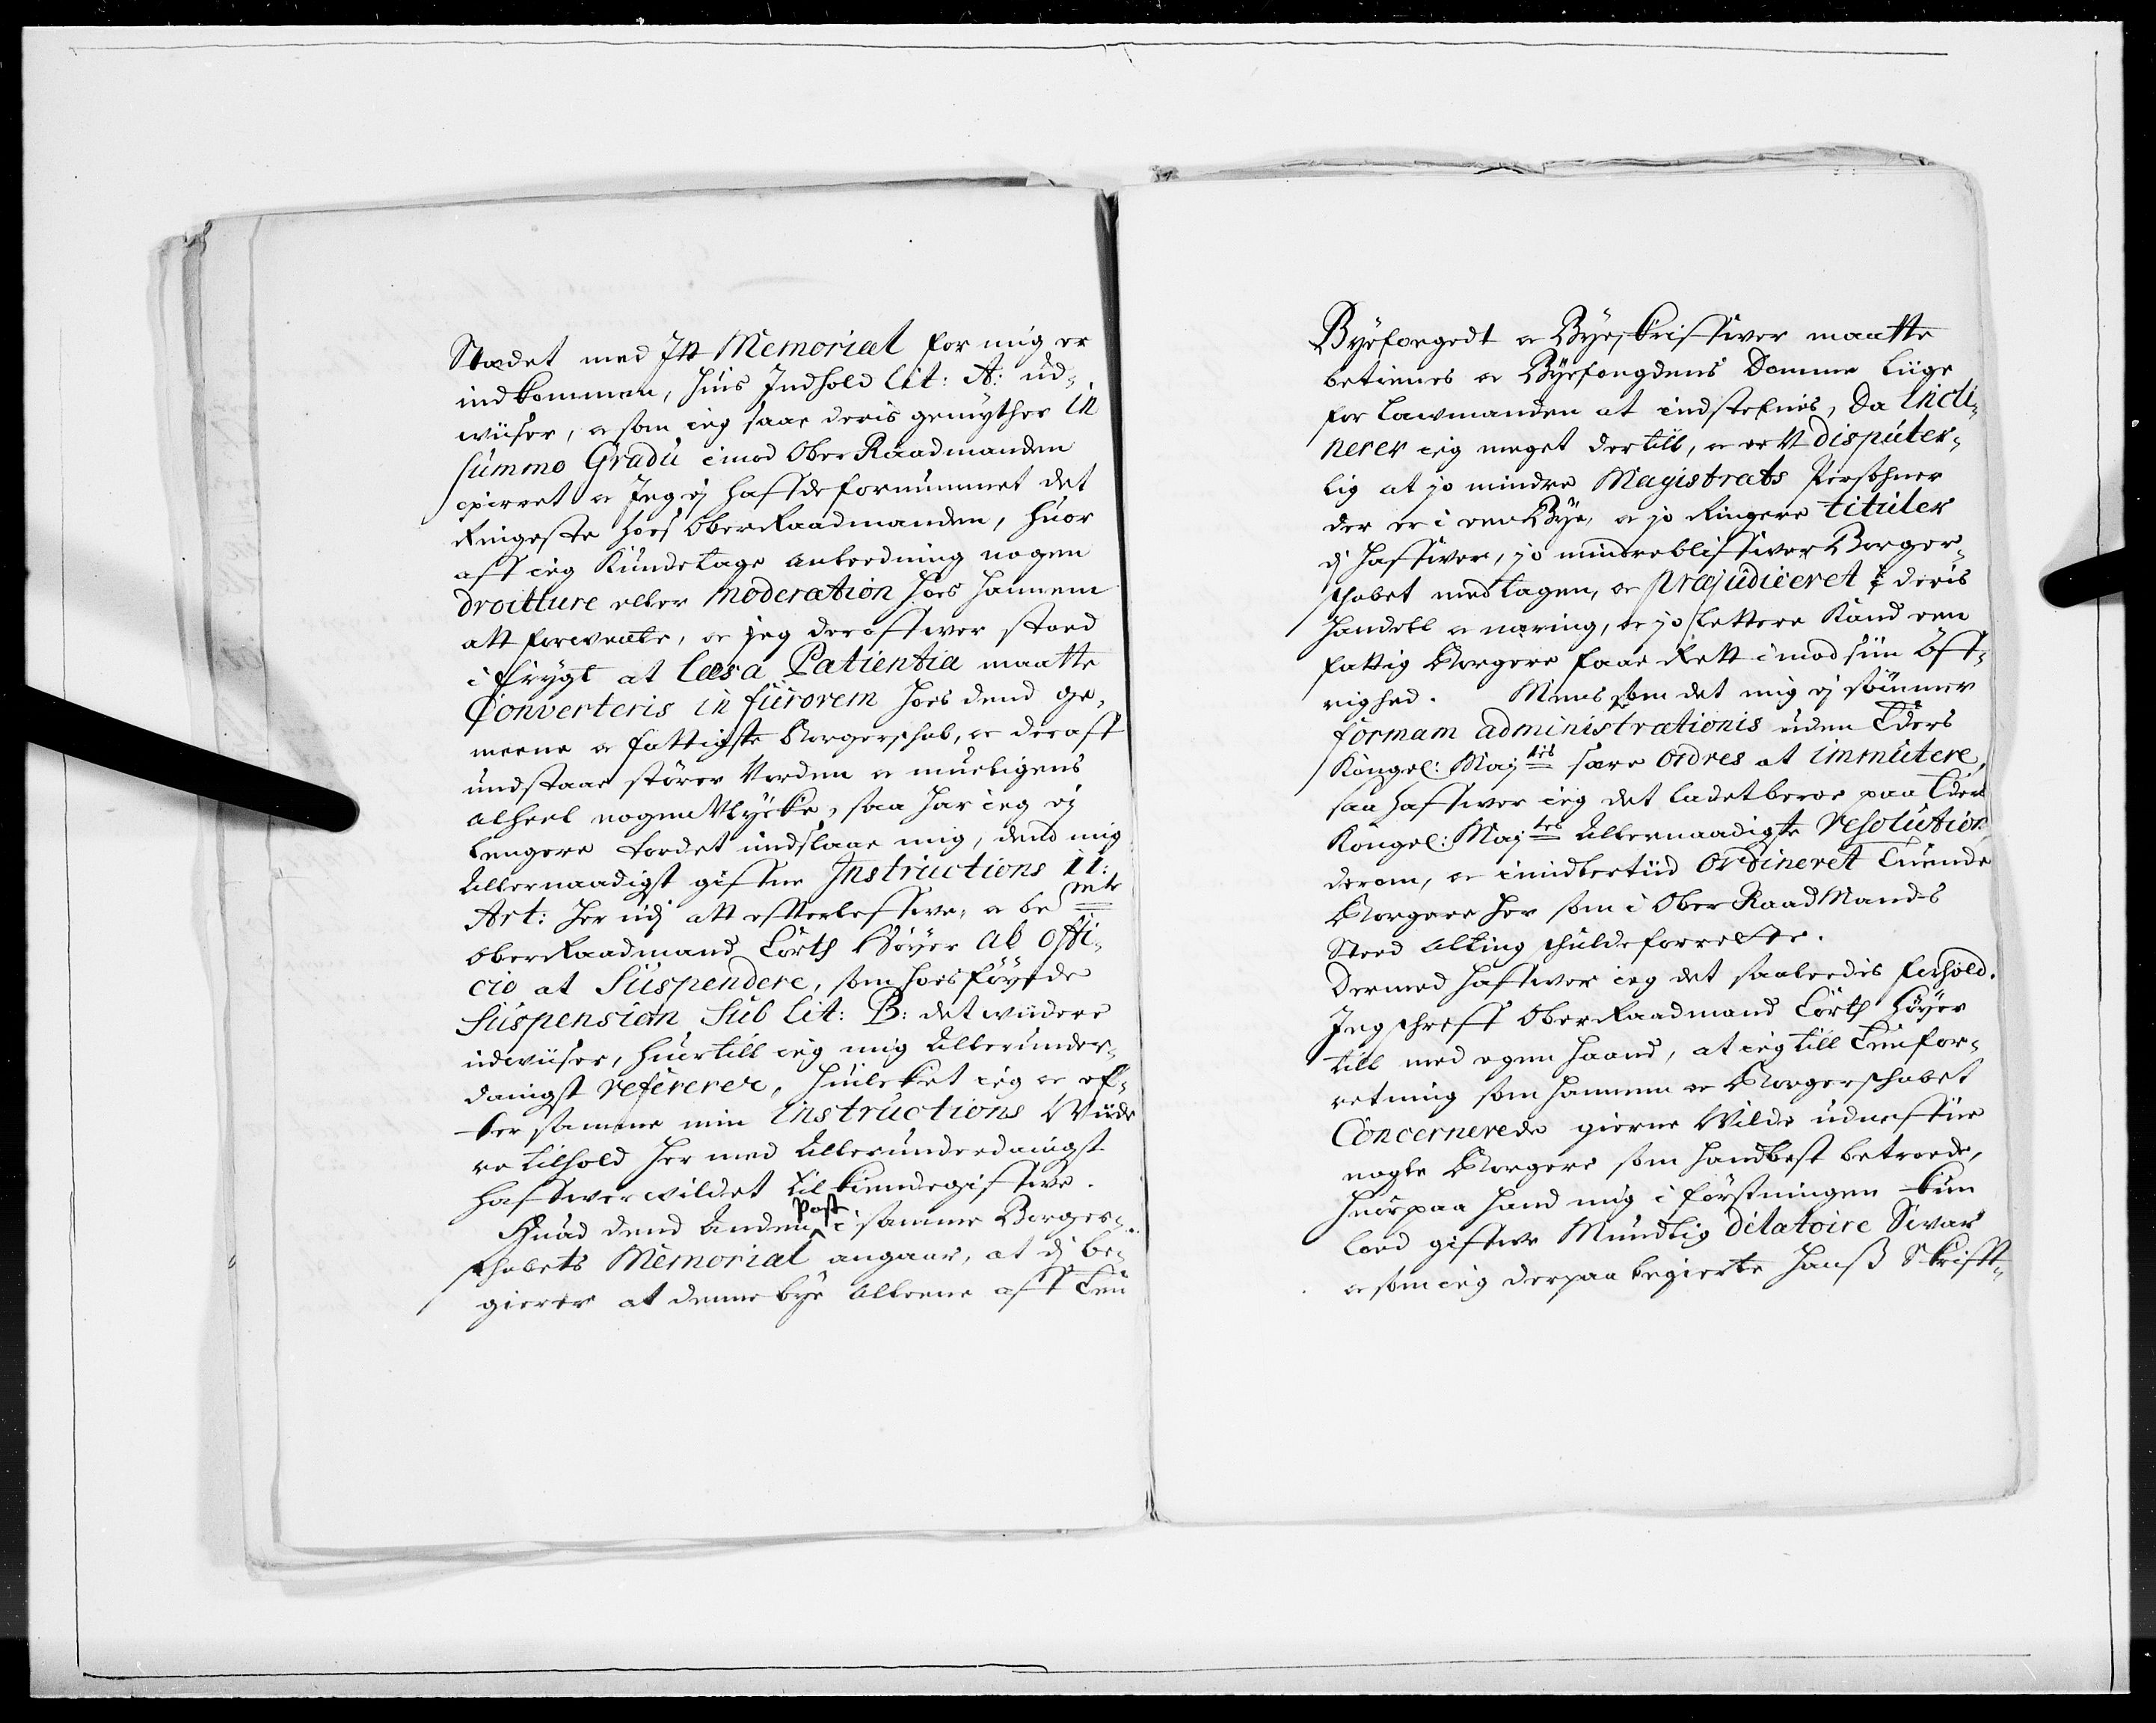 Stædet med It Memorial for mig er
indkommen, huis Indhold lit: A: ud-
wiiser, og som ieg saae deris gemyther in
summo Gradu imod Ober Raadmanden
epirret og Jeg ej hafde fornummet det
Ringeste hoes Ober Raadmanden, huor
aff ieg kunde tage anledning nogen
droitture eller moderation hoes hannem
att forvente, og jeg derofwer stoed
i frygt at læsa Patientia maatte
Converteris in furorem hoes dend ge-
meene og fattigste Borgerskab, og deraff
undstaae større Uorden og mueligens
alheel nogen Ulycke, saa har ieg ej
lengere tordet undslaae mig, dend mig
Allernaadigst gifne Instructions 11:
Art: her udj att effterlefwe, og be mte
Ober Raadmand Corth Høyer ab offi-
cio at Suspendere, som hoesføyede
Suspension Sub Lit: B: det widere
udwiiser, huortill ieg mig Allerunder-
danigst refererer, huilcket ieg og ef-
ter samme min Instructions Wiide
re tilhold her med Allerunderdanigst
hafwer wildet tilkiendegifwe.
Huad dend Anden Post i samme Borger-
skabets Memorial angaar, at dj be-
gierer at denne bye Alleene aff Een
Byefoegedt og Byeskrifwer maatte
betienes og Byefogdens Domme liige
for Lawmanden at indstefnis, Da incli-
nerer ieg meget dertill, og er U disputer-
lig at jo mindre Magistrats Persohner
der er i een Bye, og jo Ringere tituler
dj hafwer, jo mindre blifwer Borger-
skabet medtagen, og præjudiceret i deris
Handell og næring, og jo lettere kand een
fattig Borgere faae Rett imod siin Øf-
righed. Mens som det mig ej sømmer
formam administrationis uden Eders
Kongel: Maj tts sære Ordres at immutere,
saa hafwer ieg det ladet beroe paa Eders
Kongel: Maj tts Allernaadigste resolution
derom, og imidlertiid Ordineret Tuende
Borgere her som i Ober Raad Mands
Sted Alting skulde forrette.
Dermed hafwer ieg det saaledis forhold.
Jeg skref Ober Raadmand Corth Høyer
till med egen Haand, at ieg till Een for-
retning som hannem og Borgerskabet
Concernerede gierne Wilde udneffne
nogle Borgere som hand best betroede,
huorpaa hand mig i førstningen kun
loed gifwe Mundtlig dilatoire Swar
og som ieg derpaa begierte Hanß Skrifft-